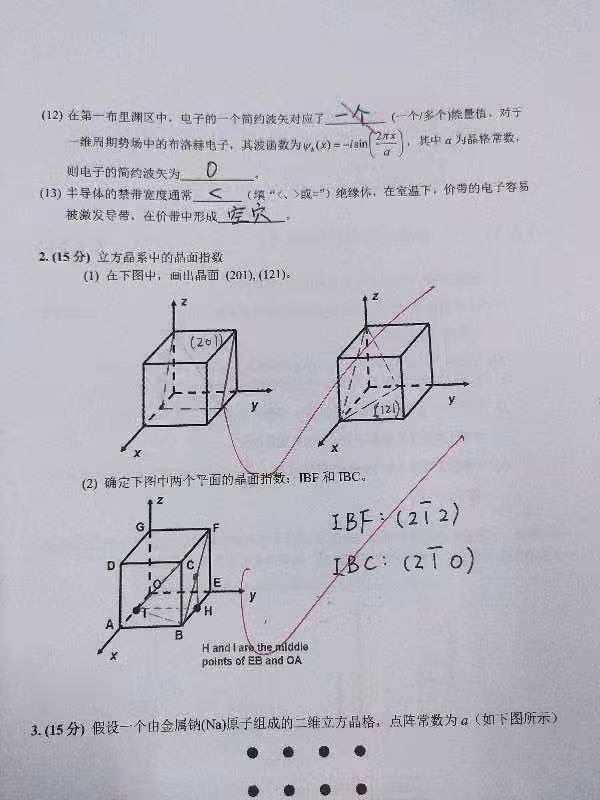 (12) 在第一布里渊区中，电子的一个简约波矢对应了 一个 (一个/多个)能量值，对于
一维周期势场中的布洛赫电子，其波函数为ψₖ(x)=-i sin(2πx/a)，其中 a 为晶格常数，
则电子的简约波矢为 0 。
(13) 半导体的禁带宽度通常 < （填“<、>或=”）绝缘体，在室温下，价带的电子容易
被激发导带，在价带中形成 空穴 。
2. (15 分) 立方晶系中的晶面指数
(1) 在下图中，画出晶面 (201), (121)。
z
(201)
y
x
z
(121)
y
x
(2) 确定下图中两个平面的晶面指数：IBF 和 IBC。
z
G
F
D
C
O
E
y
I
H
A
B
x
IBF: (2 1̅ 2)
IBC: (2 1̅ 0)
H and I are the middle
points of EB and OA
3. (15 分) 假设一个由金属钠(Na)原子组成的二维立方晶格，点阵常数为 a（如下图所示）